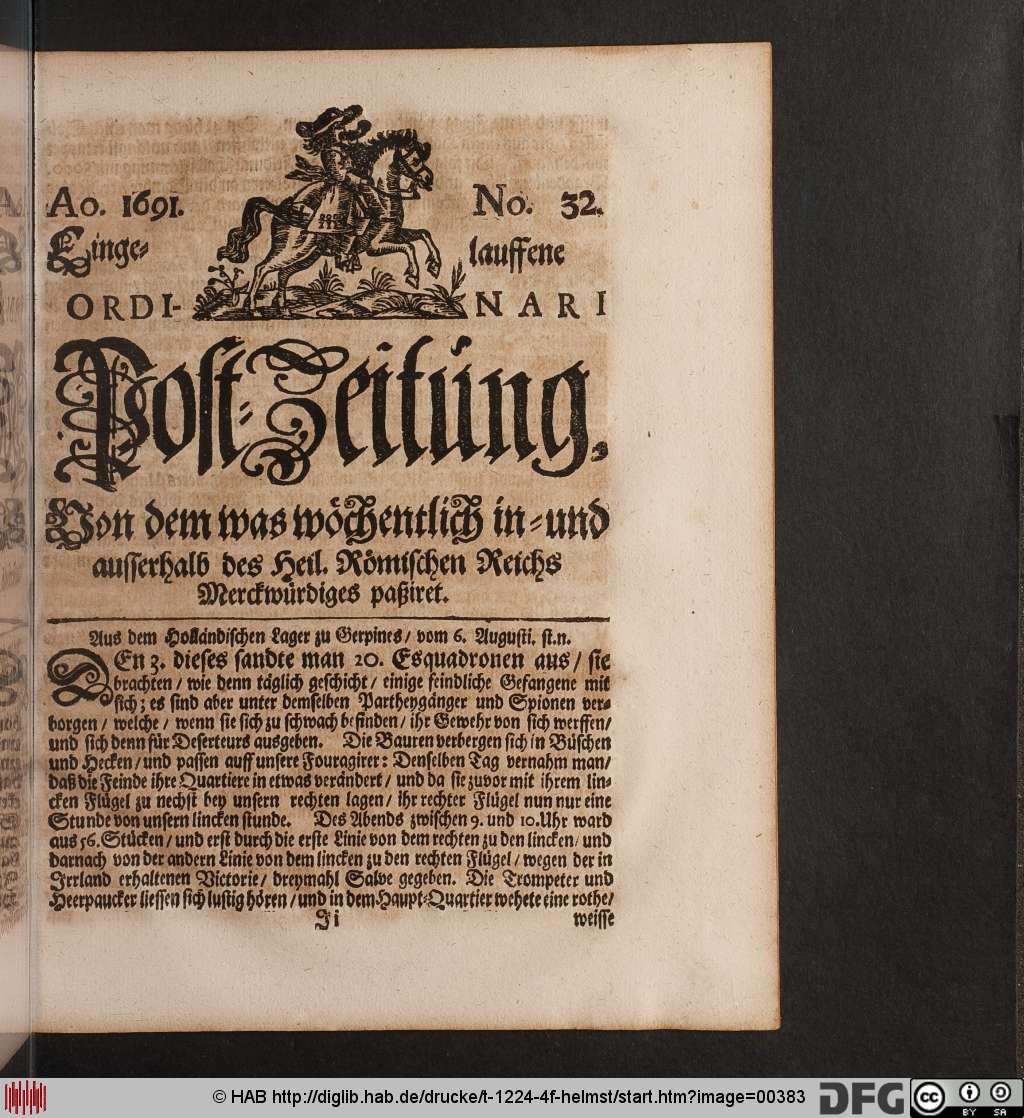 Ao. 1691. No. 32.
Einge- lauffene
ORDI- NARI
Post-Zeitung.
Von dem was wöchentlich in- und
ausserhalb des Heil. Römischen Reichs
Merckwürdiges paßiret.
Aus dem Holländischen Lager zu Gerpines / vom 6. Augusti. st.n.
DEn 3. dieses sandte man 20. Esquadronen aus / sie
brachten / wie denn täglich geschicht / einige feindliche Gefangene mit
sich; es sind aber unter demselben Partheygänger und Spionen ver-
borgen / welche / wenn sie sich zu schwach befinden / ihr Gewehr von sich werffen /
und sich denn für Deserteurs ausgeben. Die Bauren verbergen sich in Büschen
und Hecken / und passen auff unsere Fouragirer: Denselben Tag vernahm man /
daß die Feinde ihre Quartiere in etwas verändert / und da sie zuvor mit ihrem lin-
cken Flügel zu nechst bey unsern rechten lagen / ihr rechter Flügel nun nur eine
Stunde von unsern lincken stunde. Des Abends zwischen 9. und 10. Uhr ward
aus 56. Stücken / und erst durch die erste Linie von dem rechten zu den lincken / und
darnach von der andern Linie von dem lincken zu den rechten Flügel / wegen der in
Irrland erhaltenen Victorie / dreymahl Salve gegeben. Die Trompeter und
Heerpaucker liessen sich lustig hören / und in dem Haupt-Quartier wehete eine rothe /
Ji weisse
© HAB http://diglib.hab.de/drucke/t-1224-4f-helmst/start.htm?image=00383
DFG
cc BY SA